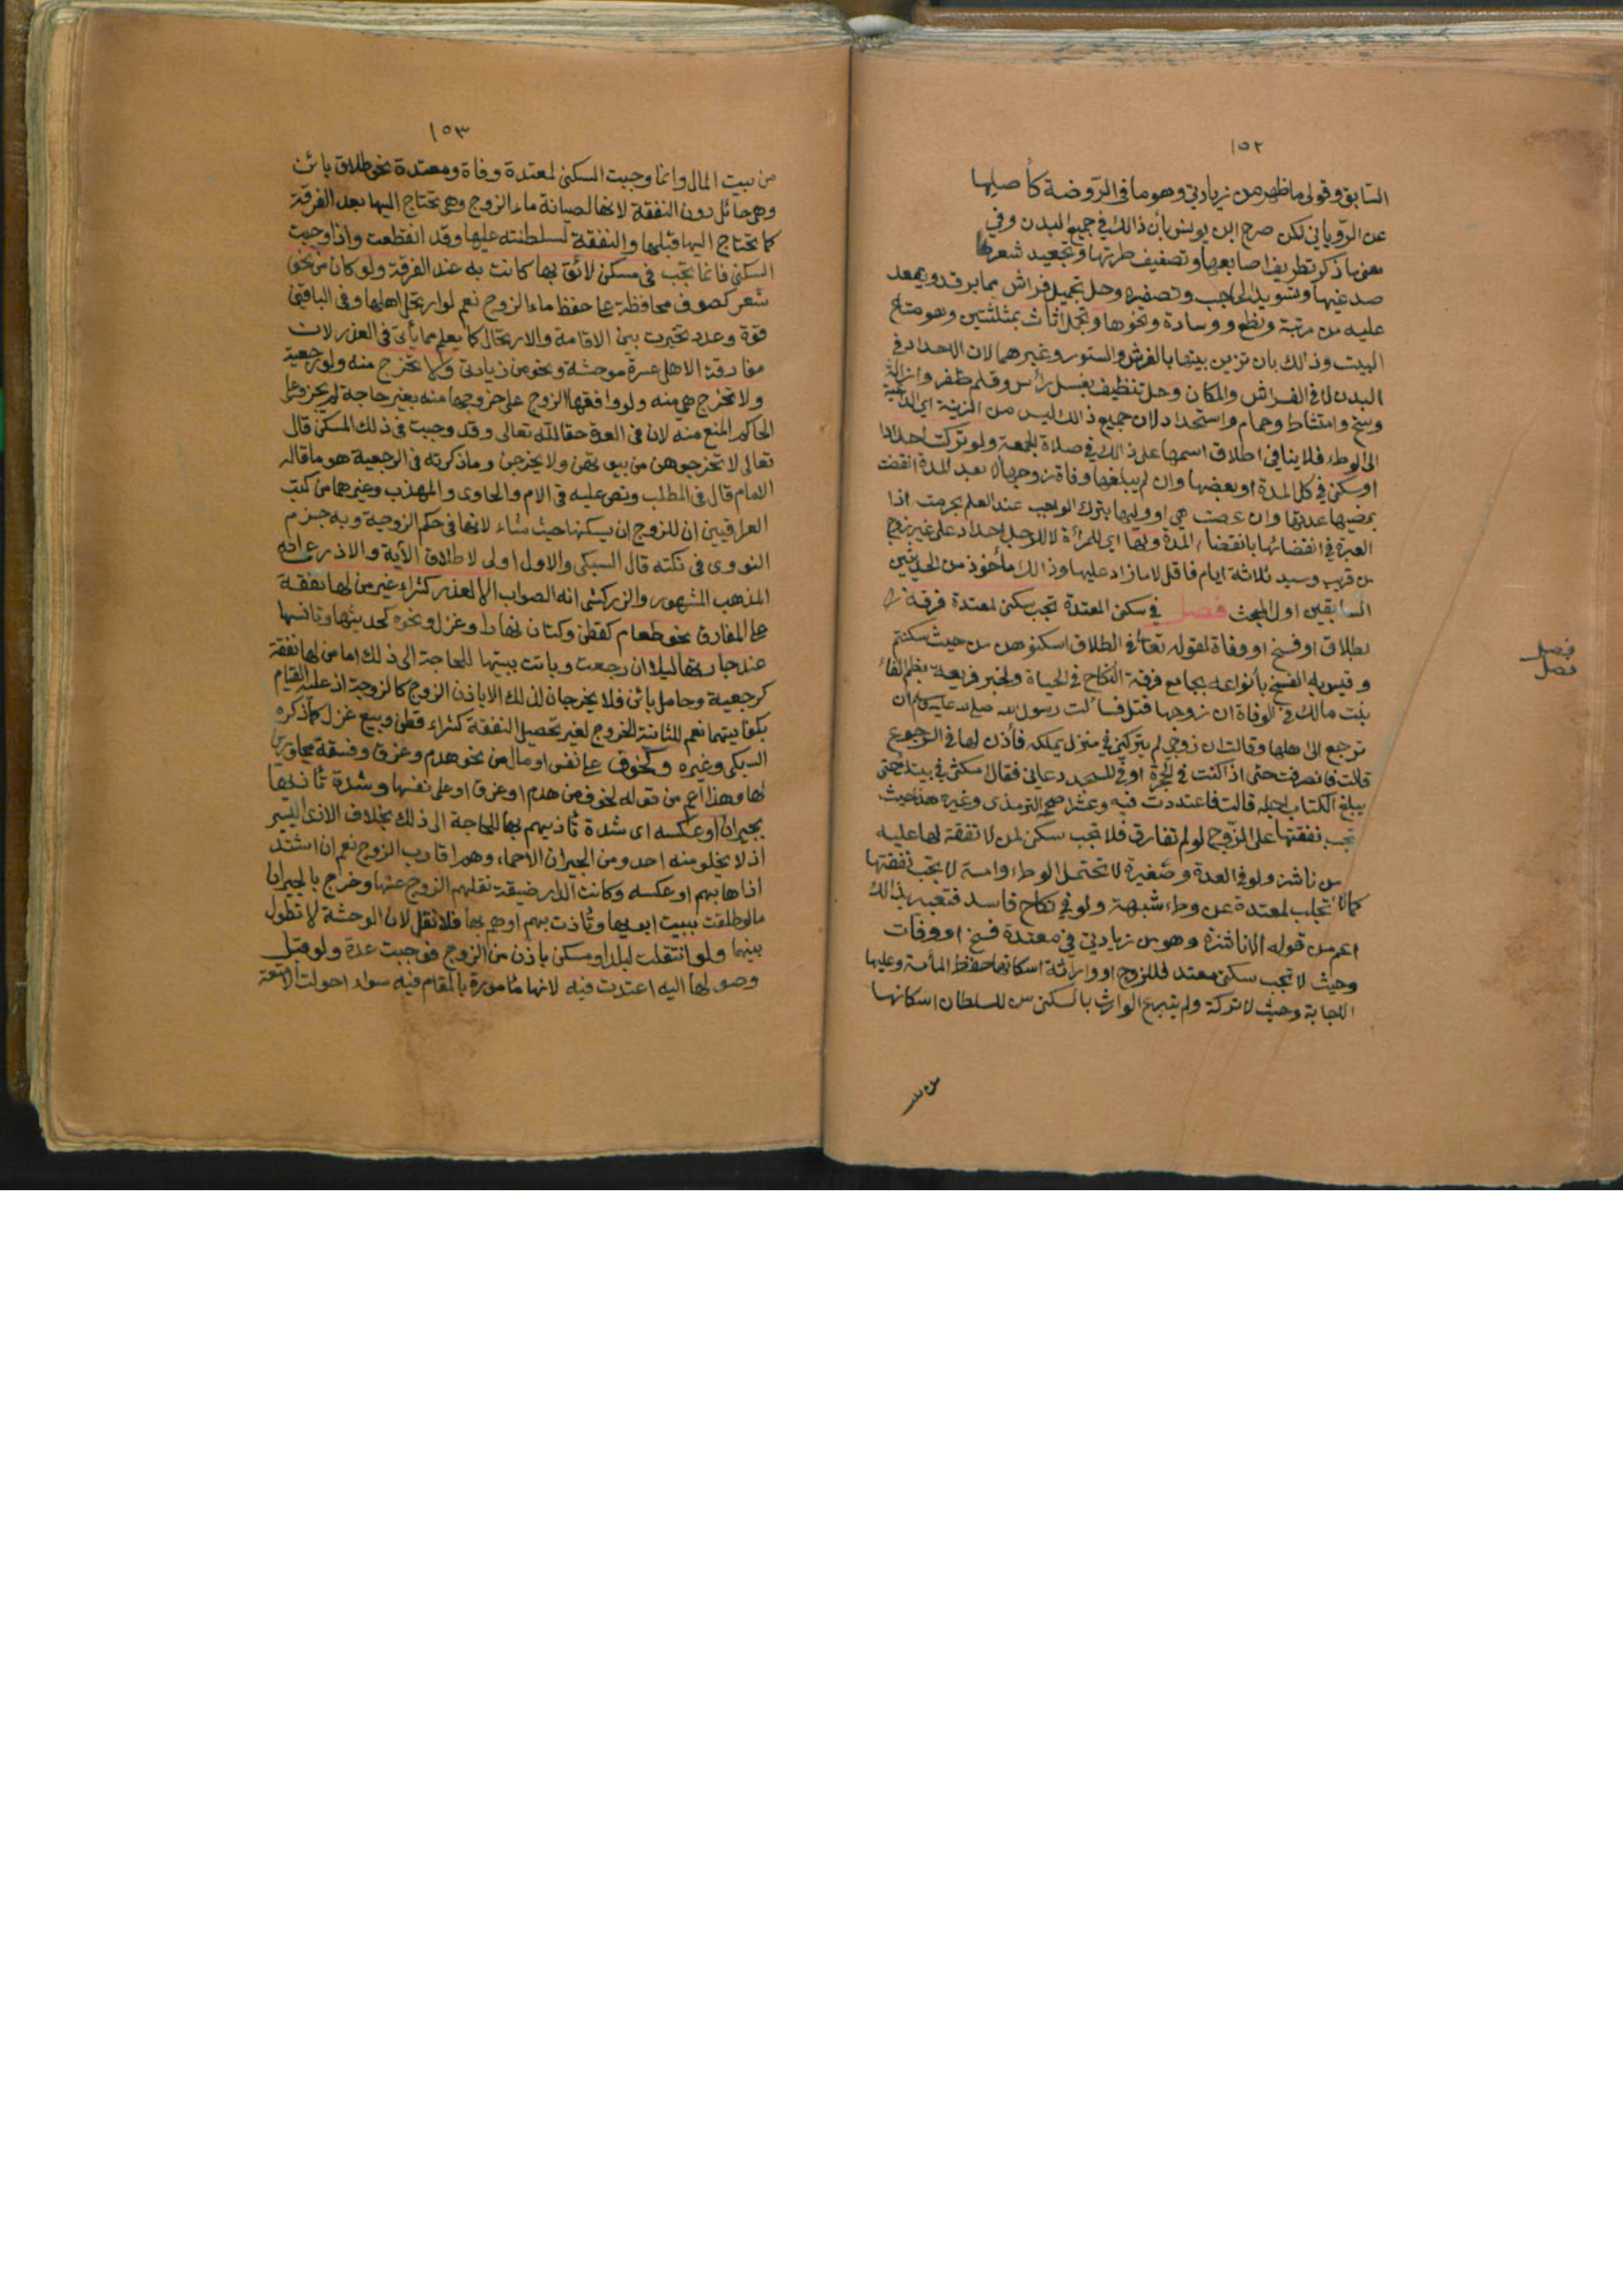 ١٥٢
السابق وقولي ما ظهر من زيادتي وهو ما في الروضة كأصيلها
عن الروياني لكن صرح ابن يونس بأن ذالك في جميع البدن وفي
معنى ما ذكر تطريف اصابعها وتصفيف طرتها وتجعيد شعر
صدغيها وتسويد الحاجب وتصفيره وحل تجميل فراش مما يرقد ويقعد
عليه من مرتبة ونطع ووسادة ونحوها وتجمل اثاث بمثلثتين وهو متاع
البيت وذالك بان تزين بيتها بالفرش والستور وغيرهما لان الاحداد في
البدن لا في الفراش والمكان وحل تنظيف بغسل رأس وقلم ظفر وازالة
وسخ وامتشاط وحمام واستحداد لان جميع ذالك ليس من الزينة اي الداعية
الى الوطء فلا ينافي اطلاق اسمها على ذالك في صلاة الجمعة ولو تركت احدادا
او سكنى في كل المدة او بعضها وان لم يبلغها وفاة زوجها الا بعد المدة انقضت
بمضيها عدتها وان عصت هي او وليها بترك الواجب عند العلم بحرمته اذا
العبرة في انقضائها بانقضاء المدة ولها اي للمرأة لا للرجل احداد على غير زوج
من قريب وسيد ثلاثة ايام فاقل لا ما زاد عليها وذالك مأخوذ من الحديثين
السابقين اول المبحث فصل في سكنى المعتدة تجب سكنى لمعتدة فرقة
بطلاق او فسخ او وفاة لقوله تعالى في الطلاق اسكنوهن من حيث سكنتم
وقيس به الفسخ بأنواعه بجامع فرقة النكاح في الحياة ولخبر فريعة بضم الفاء
بنت مالك في الوفاة ان زوجها قتل فسألت رسول الله صلى الله عليه وسلم ان
ترجع الى اهلها وقالت ان زوجي لم يتركني في منزل يملكه فأذن لها في الرجوع
قالت فانصرفت حتى اذا كنت في الحجرة او في المسجد دعاني فقال امكثي في بيتك حتى
يبلغ الكتاب اجله قالت فاعتددت فيه وعشرا صححه الترمذي وغيره هذا حيث
تجب نفقتها على الزوج لو لم تفارق فلا تجب سكنى لمن لا نفقة لها عليه
من ناشز ولو في العدة وصغيرة لا تحتمل الوطء وامة لا تجب نفقتها
كما لا تجب لمعتدة عن وطء شبهة ولو في نكاح فاسد فتعبيري بذالك
اعم من قوله الا ناشزة وهو من زيادتي في معتدة فسخ او وفات
وحيث لا تجب سكنى معتد فللزوج او وارثه اسكانها حفظا لمائه وعليها
الاجابة وحيث لا تركة ولم يتبرع الوارث بالسكنى سن للسلطان اسكانها
فصل
فصل
١٥٣
من بيت المال وانما وجبت السكنى لمعتدة وفاة ومعتدة نحو طلاق بائن
وهي حائل دون النفقة لانها لصيانة ماء الزوج وهي تحتاج اليها بعد الفرقة
كما تحتاج اليها قبلها والنفقة لسلطنته عليها وقد انقطعت واذا وجبت
السكنى فانما تجب في مسكن لائق بها كانت به عند الفرقة ولو كان من نحو
شعر كصوف محافظة على حفظ ماء الزوج نعم لو ارتحل اهلها وفي الباقين
قوة وعدد تخيرت بين الاقامة والارتحال كما يعلم مما يأتي في العذر لان
مفارقة الاهل عسرة موحشة ونحو من زيادتي ولا تخرج منه ولو رجعية
ولا تخرج هي منه ولو وافقها الزوج على خروجها منه بغير حاجة لم يجز وعلى
الحاكم المنع منه لان في العدة حقا لله تعالى وقد وجبت في ذلك المسكن قال
تعالى لا تخرجوهن من بيوتهن ولا يخرجن وما ذكرته في الرجعية هو ما قاله
الامام قال في المطلب ونص عليه في الام والحاوى والمهذب وغيرهما من كتب
العراقيين ان للزوج ان يسكنها حيث شاء لانها في حكم الزوجية وبه جزم
النووى في نكته قال السبكي والاول اولى لاطلاق الآية والاذرعي انه
المذهب المشهور والزركشي انه الصواب الا لعذر كشراء غير من لها نفقة
على المفارق نحو طعام كقطن وكتان نهارا وغزل ونحوه كحديثها وتأنسها
عند جارتها ليلا ان رجعت وباتت ببيتها للحاجة الى ذلك اما من لها نفقة
كرجعية وحامل بائن فلا يخرجان لذلك الا باذن الزوج كالزوجة اذ عليه القيام
بكفايتهما نعم للثانية الخروج لغير تحصيل النفقة كشراء قطن وبيع غزل كما ذكره
السبكي وغيره وكخوف على نفس او مال من نحو هدم وغرق وفسقة مجاورين
لها وهذا اعم من قوله لخوف من هدم او غرق او على نفسها وشدة تأذيها
بجيران او عكسه اى شدة تأذيهم بها للحاجة الى ذلك بخلاف الاذى اليسير
اذ لا يخلو منه احد ومن الجيران الاحماء وهم اقارب الزوج نعم ان اشتد
اذاها بهم او عكسه وكانت الدار ضيقة نقلهم الزوج عنها وخرج بالجيران
ما لو طلقت ببيت ابويها وتأذت بهم او هم بها فلا نقل لان الوحشة لا تطول
بينهما ولو انتقلت لبلد او مسكن باذن من الزوج فوجبت عدة ولو قبل
وصولها اليه اعتدت فيه لانها مأمورة بالمقام فيه سواء احولت الامتعة